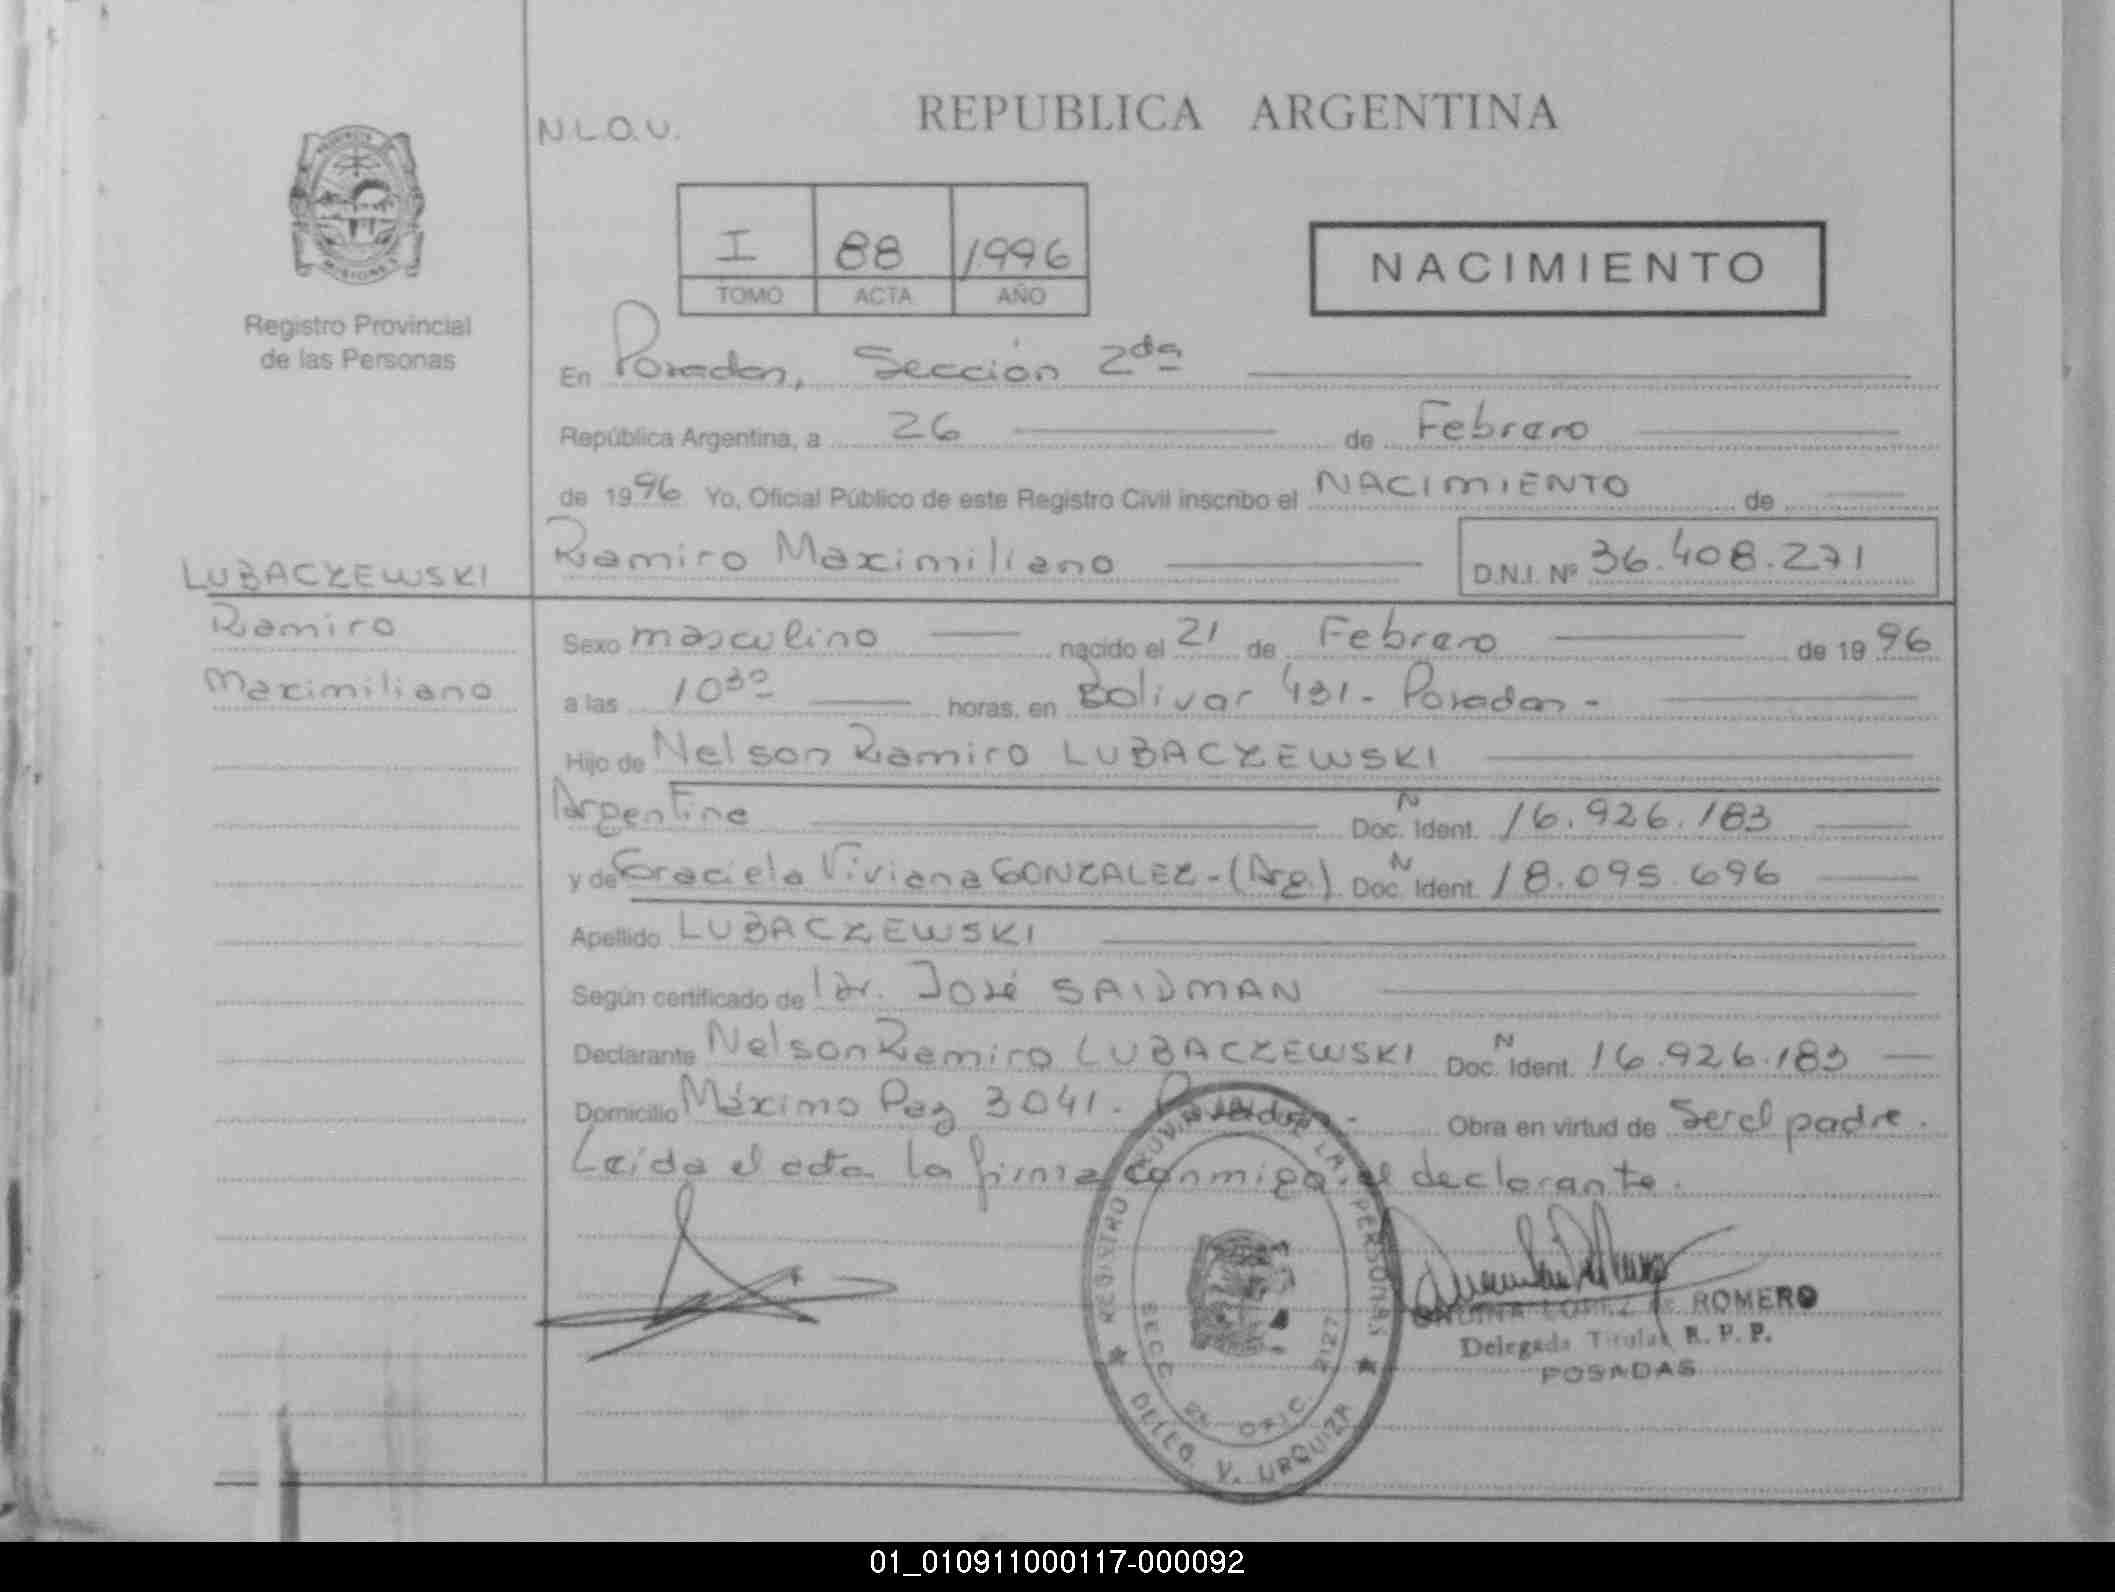 N.L.O.U.
REPUBLICA ARGENTINA
I 88 1996
TOMO ACTA AÑO
NACIMIENTO
PROVINCIA
MISIONES
Registro Provincial
de las Personas
En Posadas, Sección 2da
República Argentina, a 26 de Febrero
de 1996 Yo, Oficial Público de este Registro Civil inscribo el NACIMIENTO de
Ramiro Maximiliano D.N.I. Nº 36.408.271
LUBACZEWSKI
Ramiro
Maximiliano
Sexo masculino nacido el 21 de Febrero de 1996
a las 10³⁰ horas, en Bolivar 431 - Posadas -
Hijo de Nelson Ramiro LUBACZEWSKI
Argentina Doc. Ident. N 16.926.183
y de Graciela Viviana GONZALEZ - (Arg.) Doc. Ident. N 18.095.696
Apellido LUBACZEWSKI
Según certificado de Dr. José SAIDMAN
Declarante Nelson Ramiro LUBACZEWSKI Doc. Ident. N 16.926.183
Domicilio Máximo Paz 3041 - Posadas - Obra en virtud de Ser el padre.
Leída el acta la firma conmigo el declarante.
REGISTRO PROVINCIAL DE LAS PERSONAS
SECC. 2a OFIC. 2127
DELEG. V. URQUIZA
LOPEZ de ROMERO
Delegada Titular R. P. P.
POSADAS
01_010911000117-000092